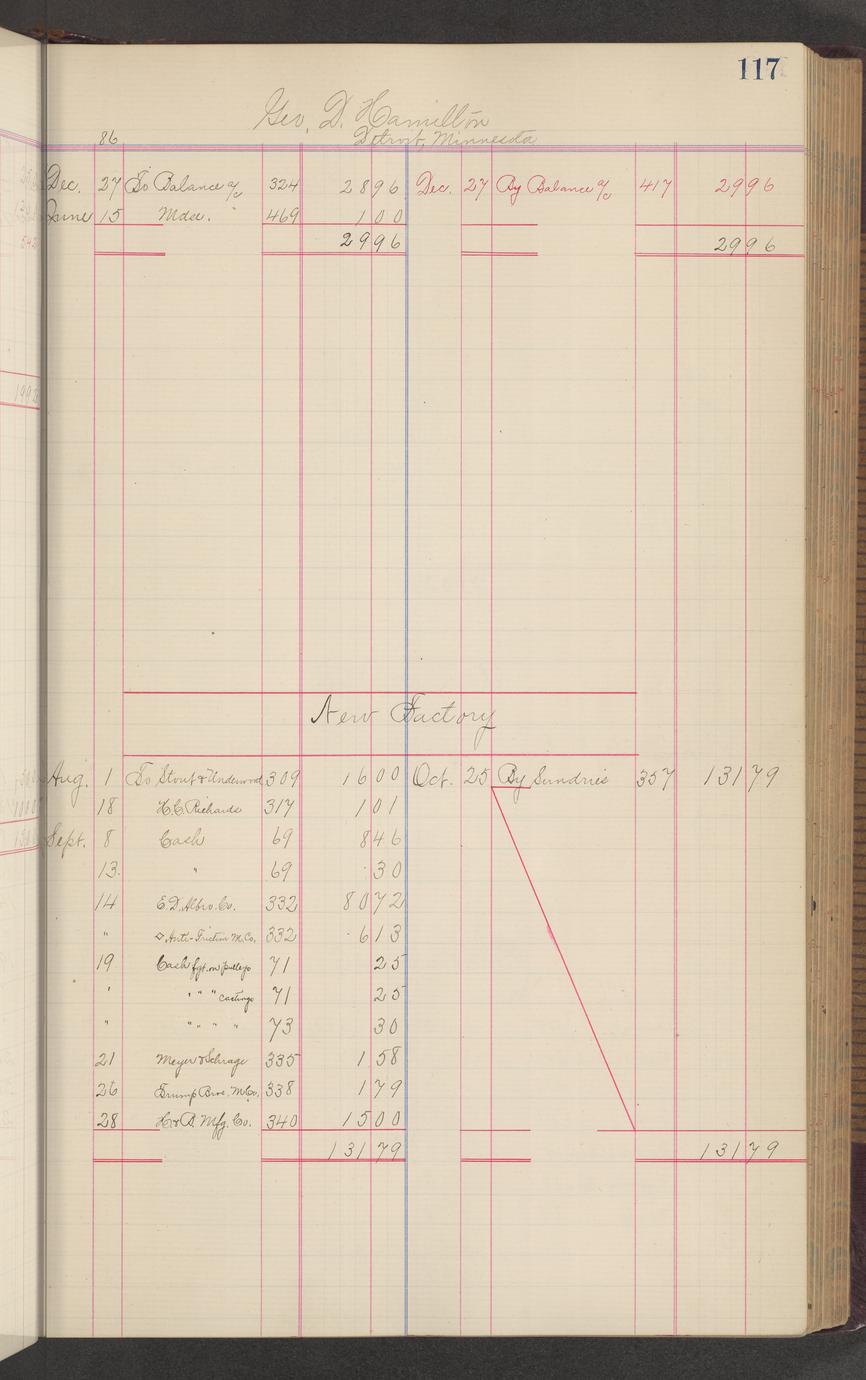 117
Geo. D. Hamilton
86 Detroit, Minnesota
Dec. 27 To Balance a/c 324 2896 Dec. 27 By Balance a/c 417 2996
June 15 Mdse. " 469 100
2996 2996
New Factory
Aug. 1 To Stout & Underwood 309 1600 Oct. 25 By Sundries 357 13179
18 H.C. Richards 317 101
Sept. 8 Cash 69 846
13. " 69 30
14 E.D. Albro. Co. 332 8072
" Anti-Friction M. Co. 332 613
19 Cash fgt. on pulleys 71 25
" " " " castings 71 25
" " " " " 73 30
21 Meyer & Schrage 335 158
26 Trump Bros. M. Co. 338 179
28 H. & B. Mfg. Co. 340 1500
13179 13179